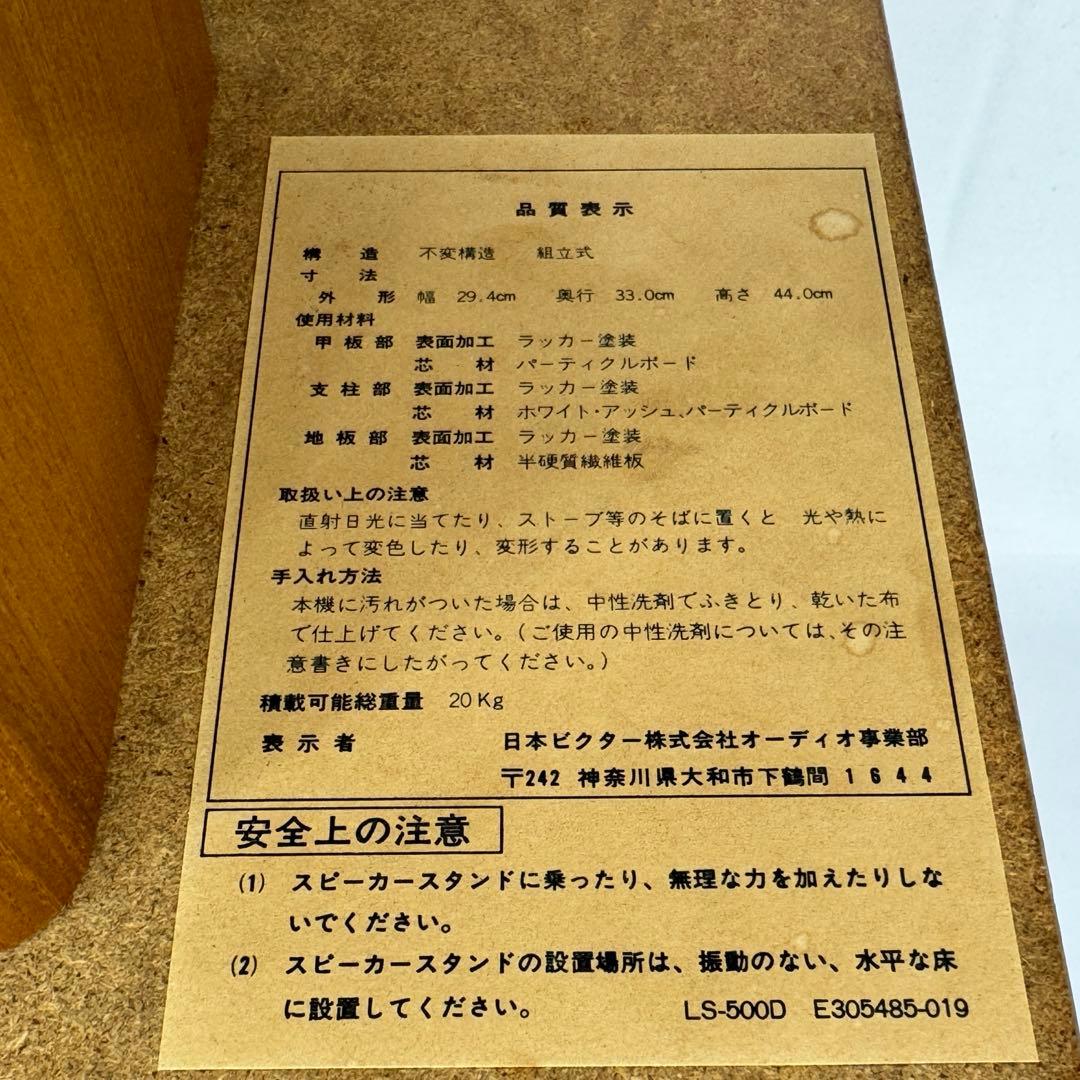 品質表示
構造 不変構造 組立式
寸法
外形 幅 29.4cm 奥行 33.0cm 高さ 44.0cm
使用材料
甲板部 表面加工 ラッカー塗装
芯材 パーティクルボード
支柱部 表面加工 ラッカー塗装
芯材 ホワイト・アッシュ、パーティクルボード
地板部 表面加工 ラッカー塗装
芯材 半硬質繊維板
取扱い上の注意
直射日光に当てたり、ストーブ等のそばに置くと 光や熱に
よって変色したり、変形することがあります。
手入れ方法
本機に汚れがついた場合は、中性洗剤でふきとり、乾いた布
で仕上げてください。(ご使用の中性洗剤については、その注
意書きにしたがってください。)
積載可能総重量 20Kg
表示者 日本ビクター株式会社オーディオ事業部
〒242 神奈川県大和市下鶴間1644
安全上の注意
(1) スピーカースタンドに乗ったり、無理な力を加えたりしな
いでください。
(2) スピーカースタンドの設置場所は、振動のない、水平な床
に設置してください。 LS-500D E305485-019